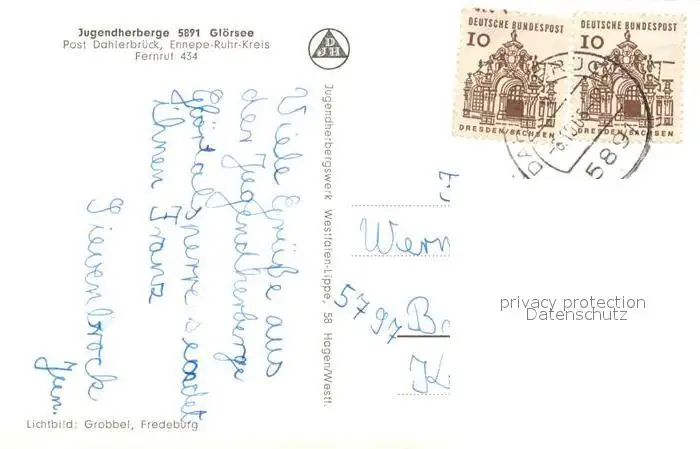 Jugendherberge 5891 Glörsee
Post Dahlerbrück, Ennepe-Ruhr-Kreis
Fernruf 434
DJH
Viele Grüße aus
der Jugendherberge
Glörtalsperre sendet
Ihnen Franz
Sievenbrock
Jun.
Lichtbild: Grobbel, Fredeburg
Jugendherbergswerk Westfalen-Lippe, 58 Hagen/Westf.
DEUTSCHE BUNDESPOST
10
DRESDEN/SACHSEN
DEUTSCHE BUNDESPOST
10
DRESDEN/SACHSEN
5891
Wern
5797 B
K
privacy protection
Datenschutz